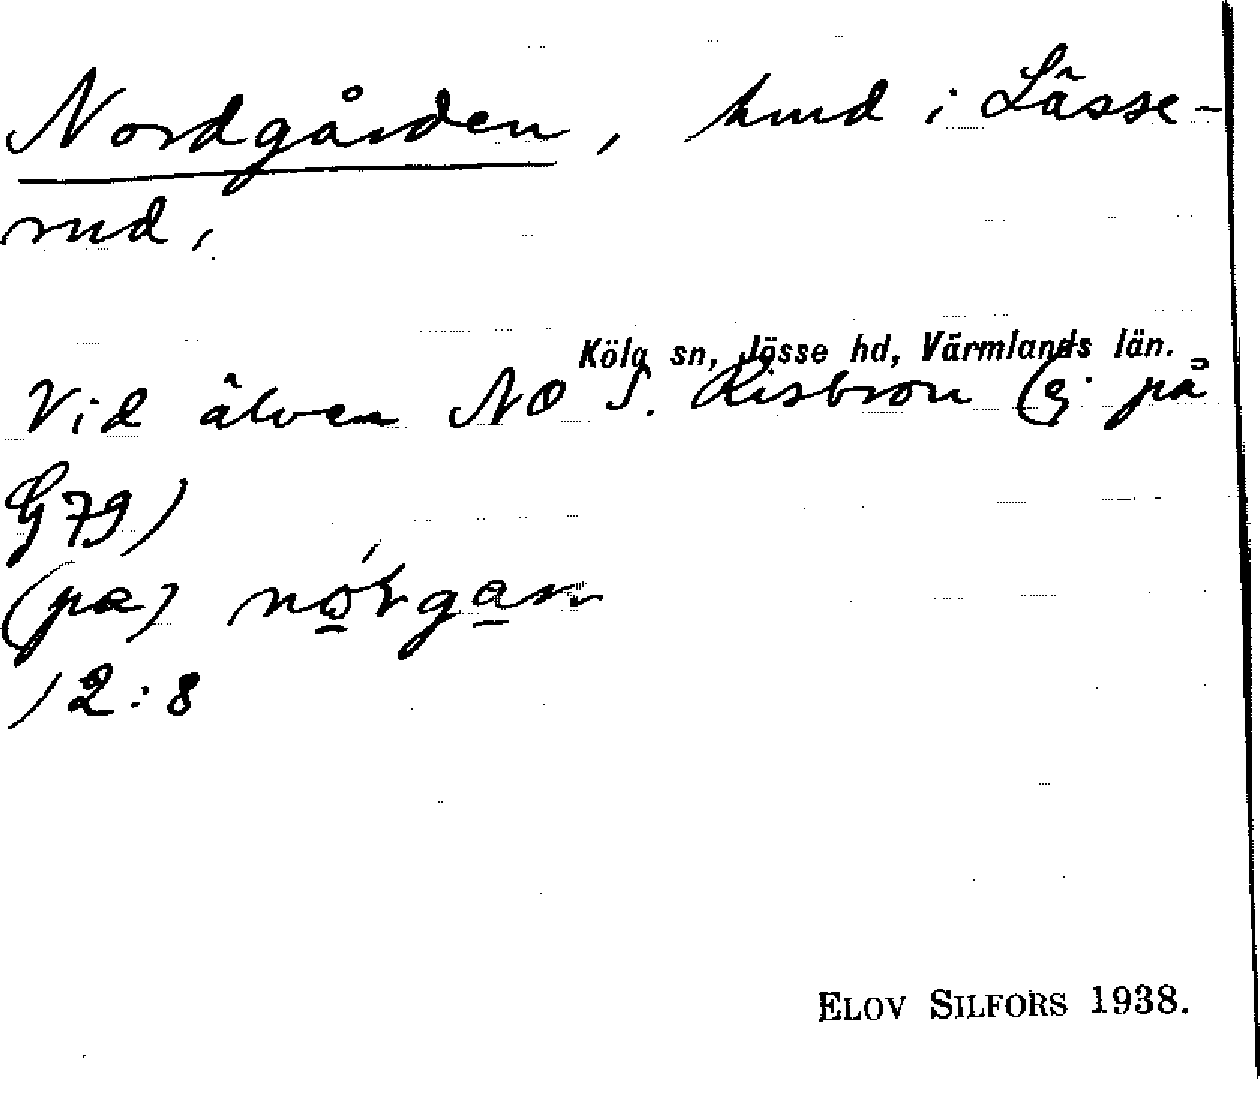 Nordgården, hmd i Lässe-
rud,
Köla sn, Jösse hd, Värmlands län.
Vid älven NO S. Risbron (ej på
G 79)
(pa) nórgan
12:8
ELOV SILFORS 1938.